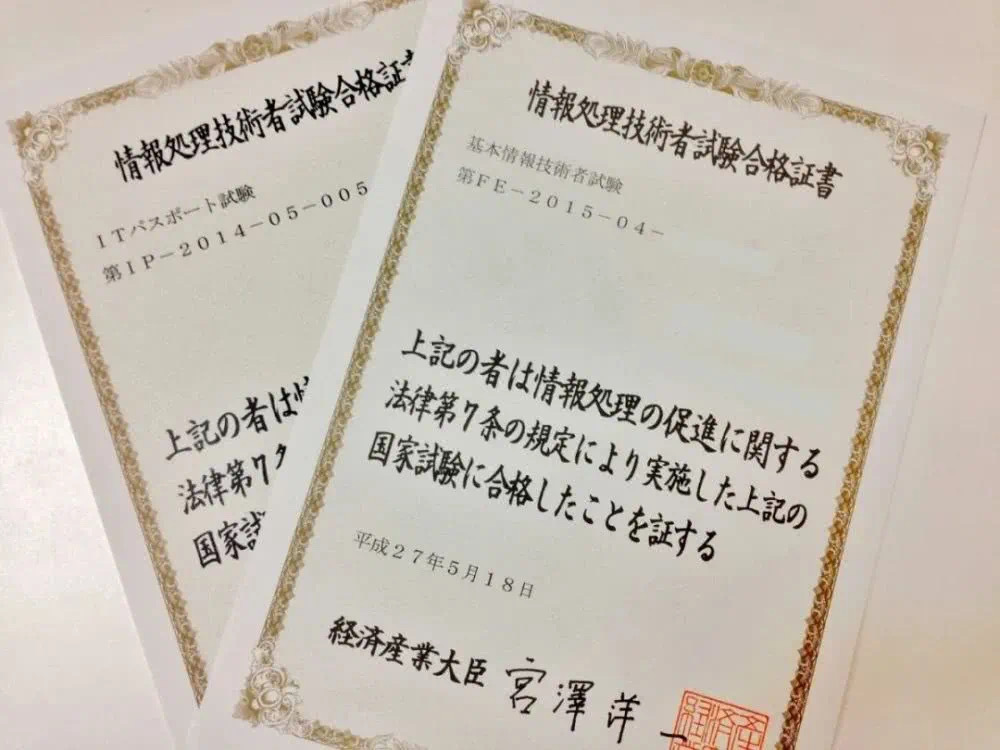 情報処理技術者試験合格証
ITパスポート試験
第IP-2014-05-005
上記の者は
法律第7
国家試
情報処理技術者試験合格証書
基本情報技術者試験
第FE-2015-04-
上記の者は情報処理の促進に関する
法律第7条の規定により実施した上記の
国家試験に合格したことを証する
平成27年5月18日
経済産業大臣 宮澤洋一
経済産